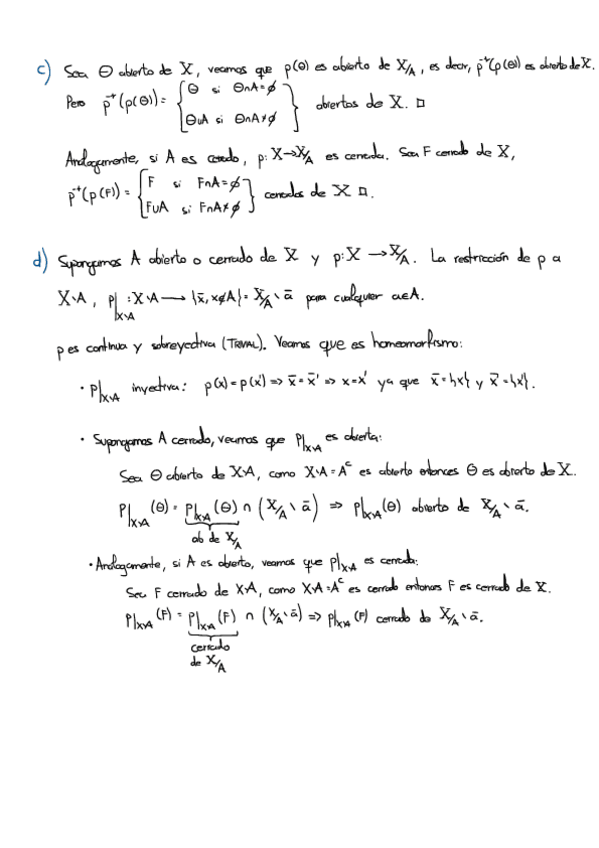 c) Sea Θ abierto de X, veamos que p(Θ) es abierto de X/A, es decir, p⁻¹(p(Θ)) es abierto de X.
Pero p⁻¹(p(Θ)) = { Θ si Θ∩A=∅
Θ∪A si Θ∩A≠∅ } abiertos de X. □
Análogamente, si A es cerrado, p: X→X/A es cerrada. Sea F cerrado de X,
p⁻¹(p(F)) = { F si F∩A=∅
F∪A si F∩A≠∅ } cerrados de X □.
d) Supongamos A abierto o cerrado de X y p: X → X/A. La restricción de p a
X∖A, p|X∖A : X∖A → {x̄, x∉A} = X/A ∖ ā para cualquier a∈A.
p es continua y sobreyectiva (TRIVIAL). Veamos que es homeomorfismo:
· p|X∖A inyectiva: p(x) = p(x') => x̄ = x̄' => x=x' ya que x̄={x} y x̄'={x'}.
· Supongamos A cerrado, veamos que p|X∖A es abierta:
Sea Θ abierto de X∖A, como X∖A = Aᶜ es abierto entonces Θ es abierto de X.
p|X∖A (Θ) = p|X∖A (Θ) ∩ (X/A ∖ ā) => p|X∖A (Θ) abierto de X/A ∖ ā.
ab de X/A
· Análogamente, si A es abierto, veamos que p|X∖A es cerrada:
Sea F cerrado de X∖A, como X∖A = Aᶜ es cerrado entonces F es cerrado de X.
p|X∖A (F) = p|X∖A (F) ∩ (X/A ∖ ā) => p|X∖A (F) cerrado de X/A ∖ ā.
cerrado
de X/A